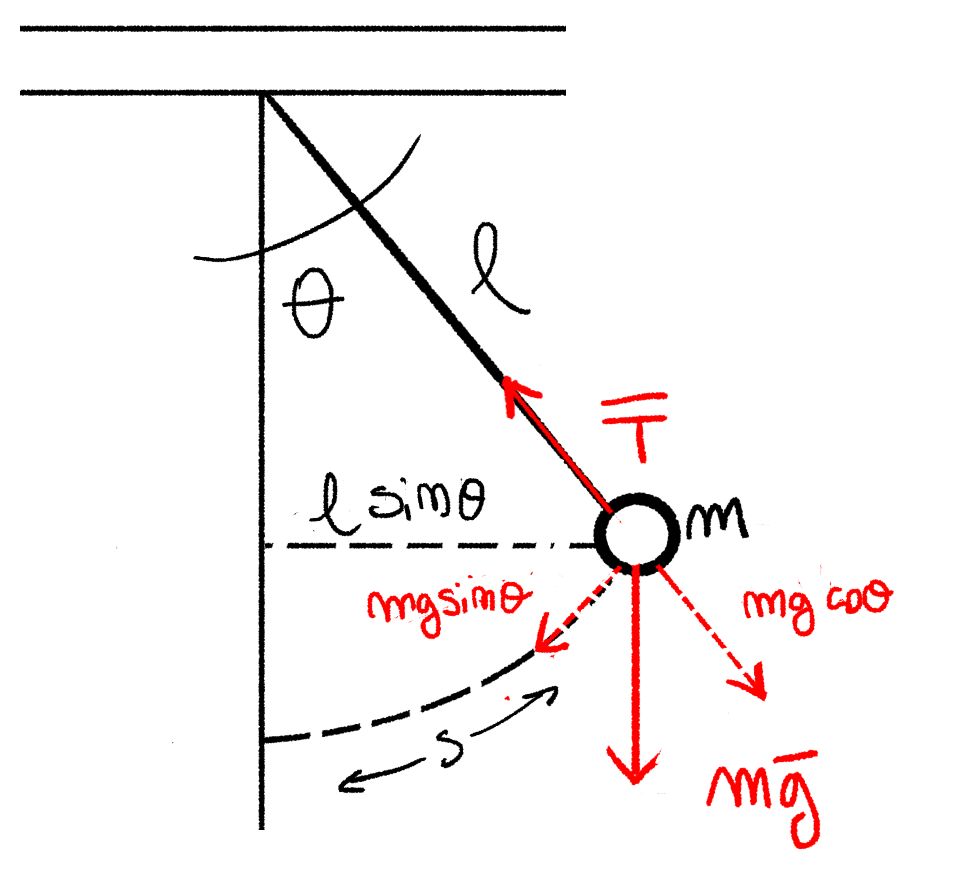 θ
l
T̅
l sinθ
m
mg sinθ
mg cosθ
s
mg̅